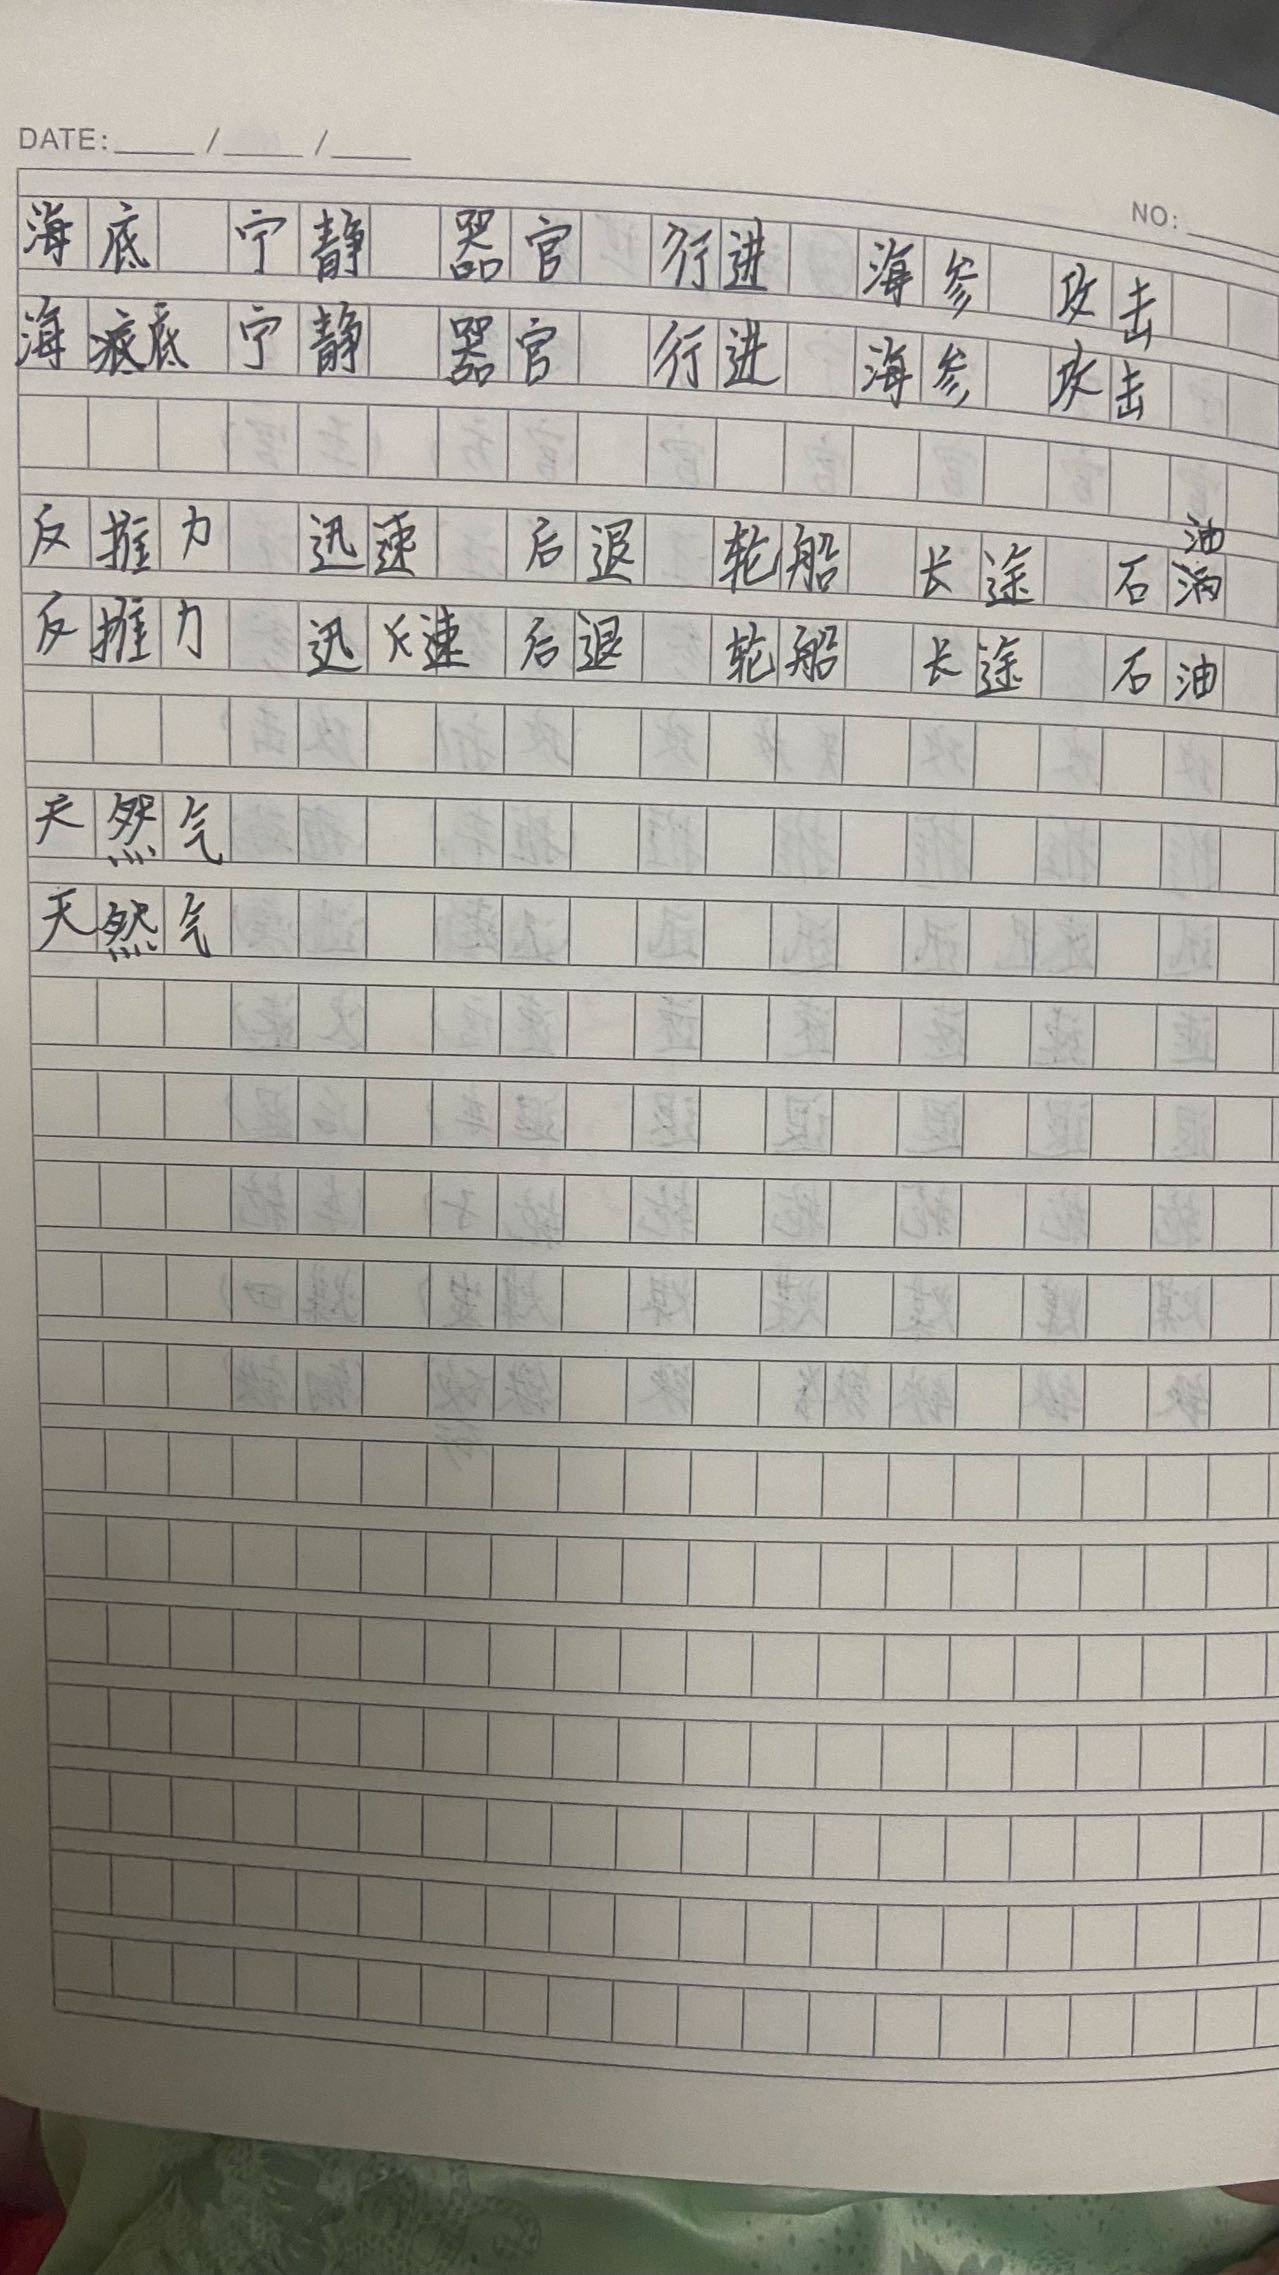 DATE: / /
NO:
海底 宁静 器官 行进 海参 攻击
海底 宁静 器官 行进 海参 攻击
油
反推力 迅速 后退 轮船 长途 石
反推力 迅速 后退 轮船 长途 石油
天然气
天然气